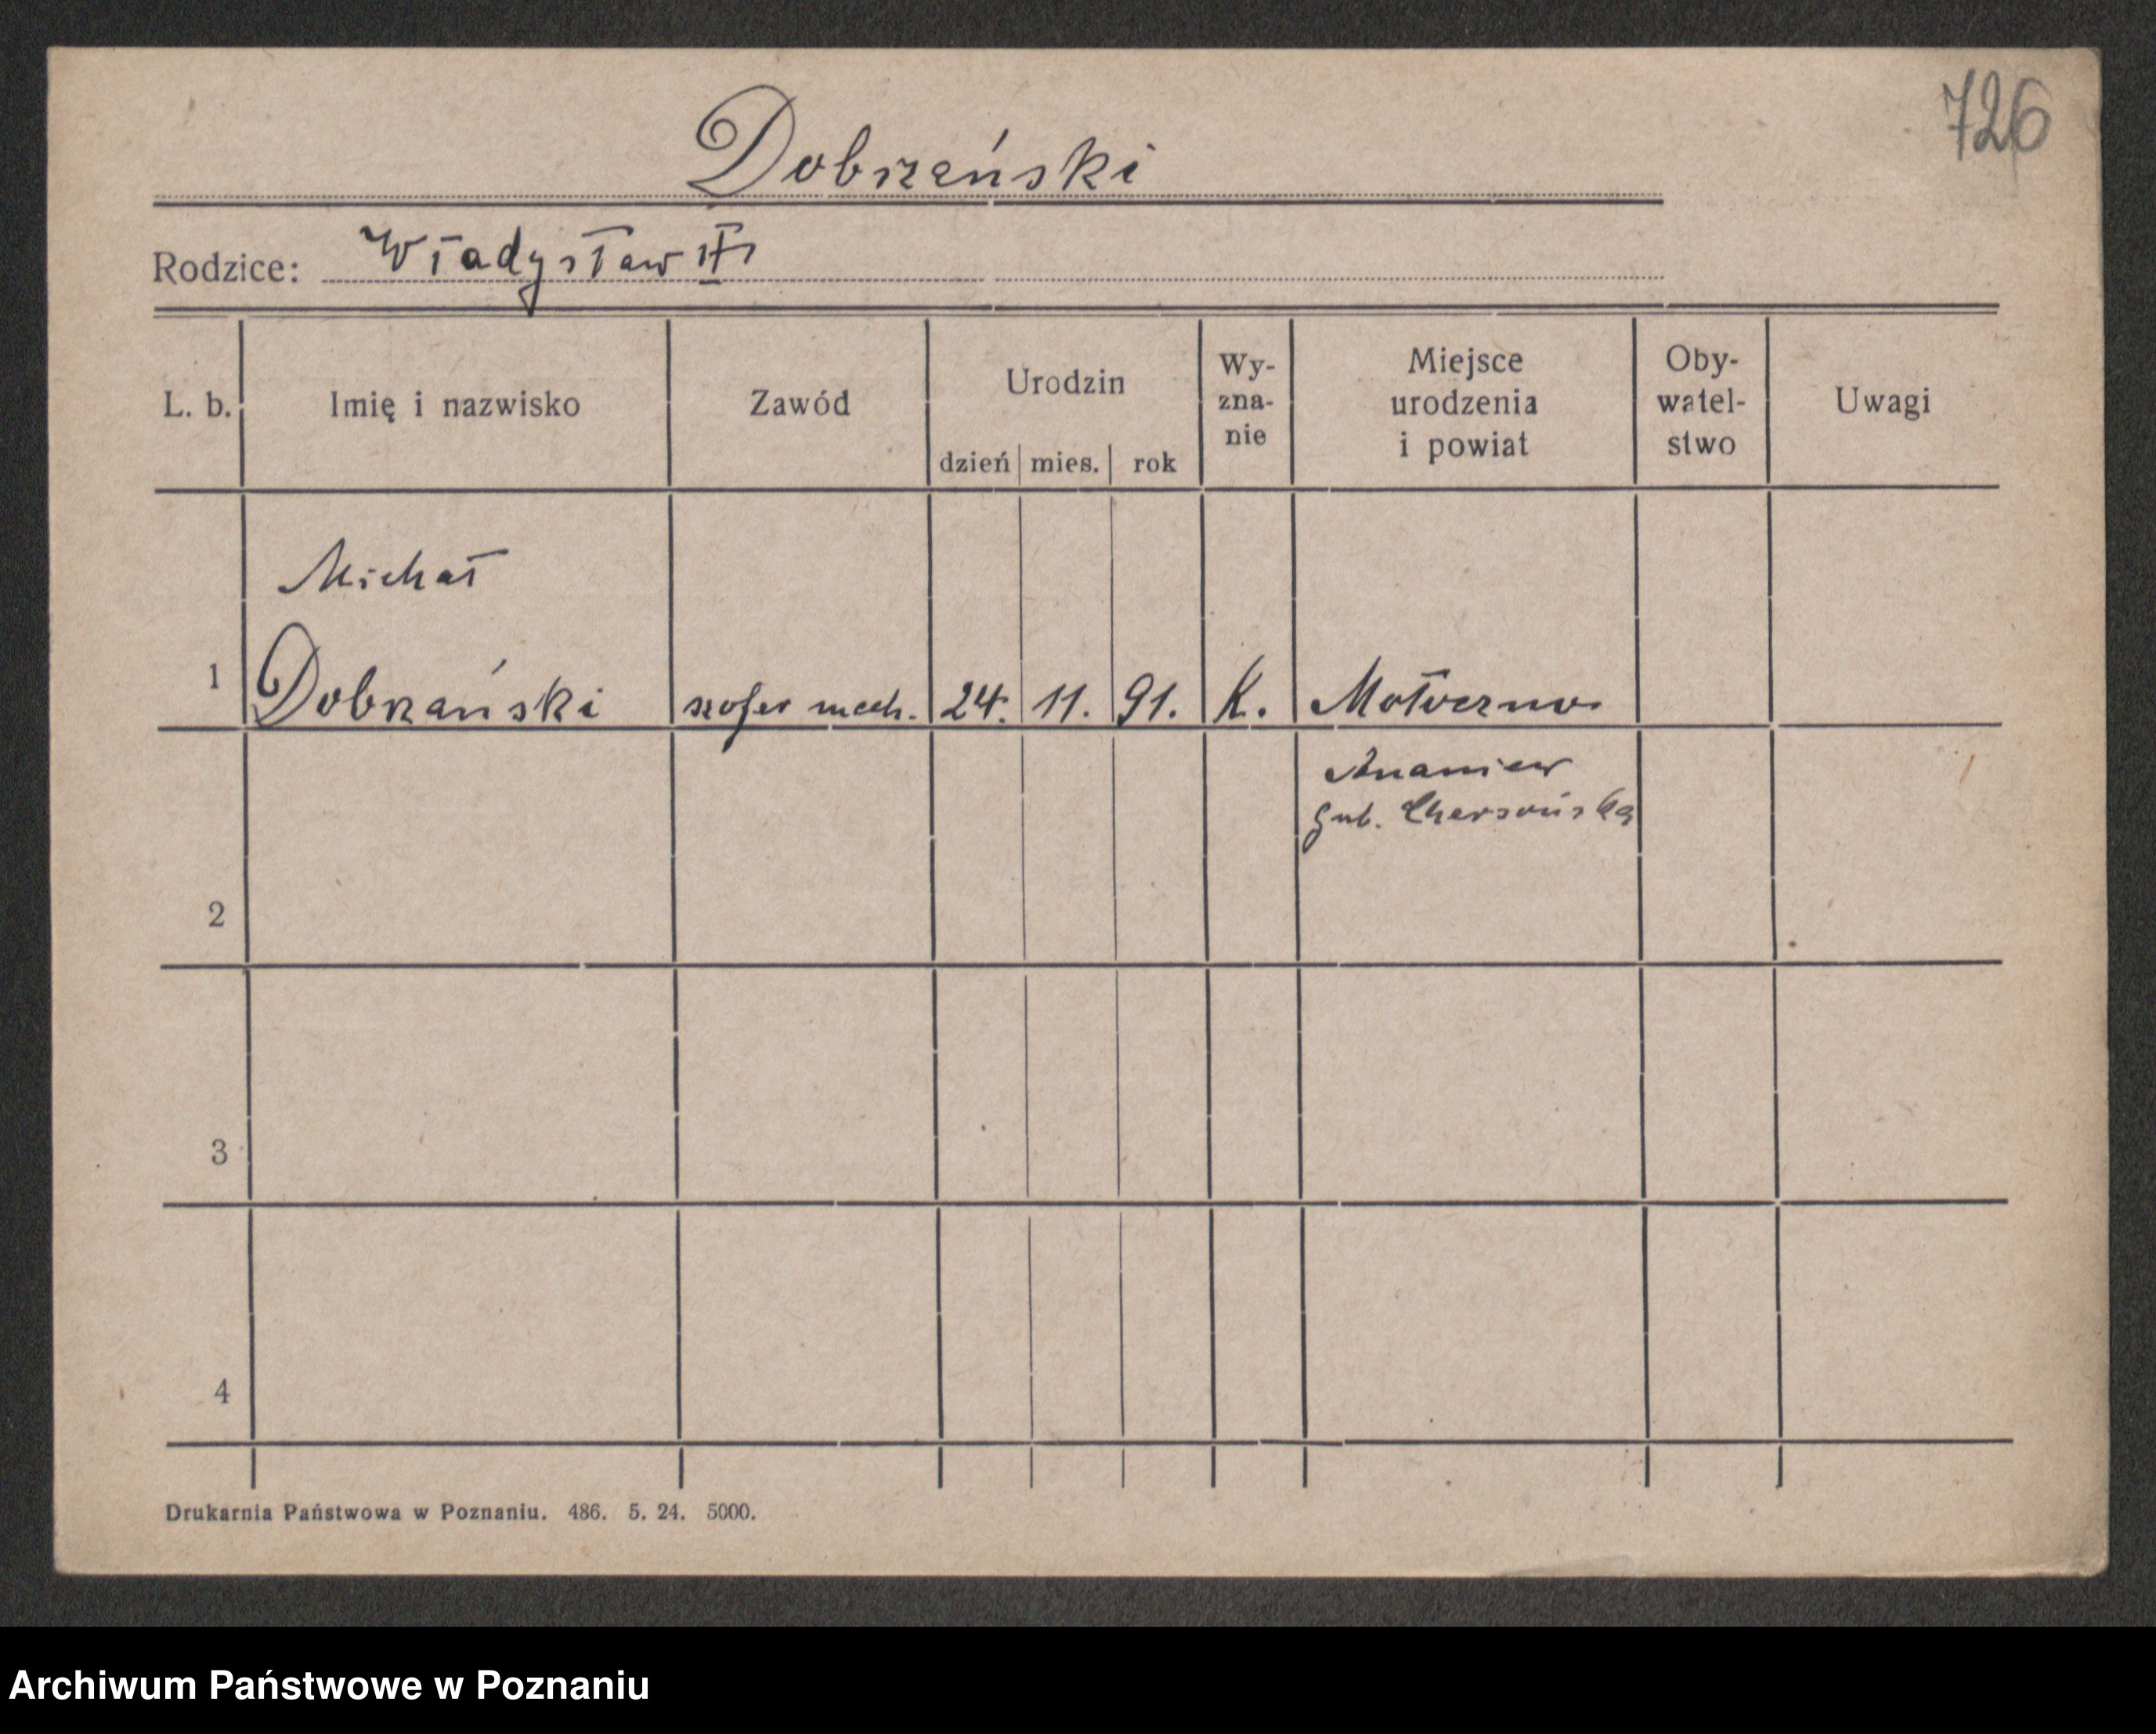 726
Dobrzański
Rodzice: Władysław
L. b. Imię i nazwisko Zawód Urodzin dzień mies. rok Wy-zna-nie Miejsce urodzenia i powiat Oby-watel-stwo Uwagi
Michał
1 Dobrzański szofer mech. 24. 11. 91. K.
Ananiew
gub. Chersońska
2
3
4
Drukarnia Państwowa w Poznaniu. 486. 5. 24. 5000.
Archiwum Państwowe w Poznaniu